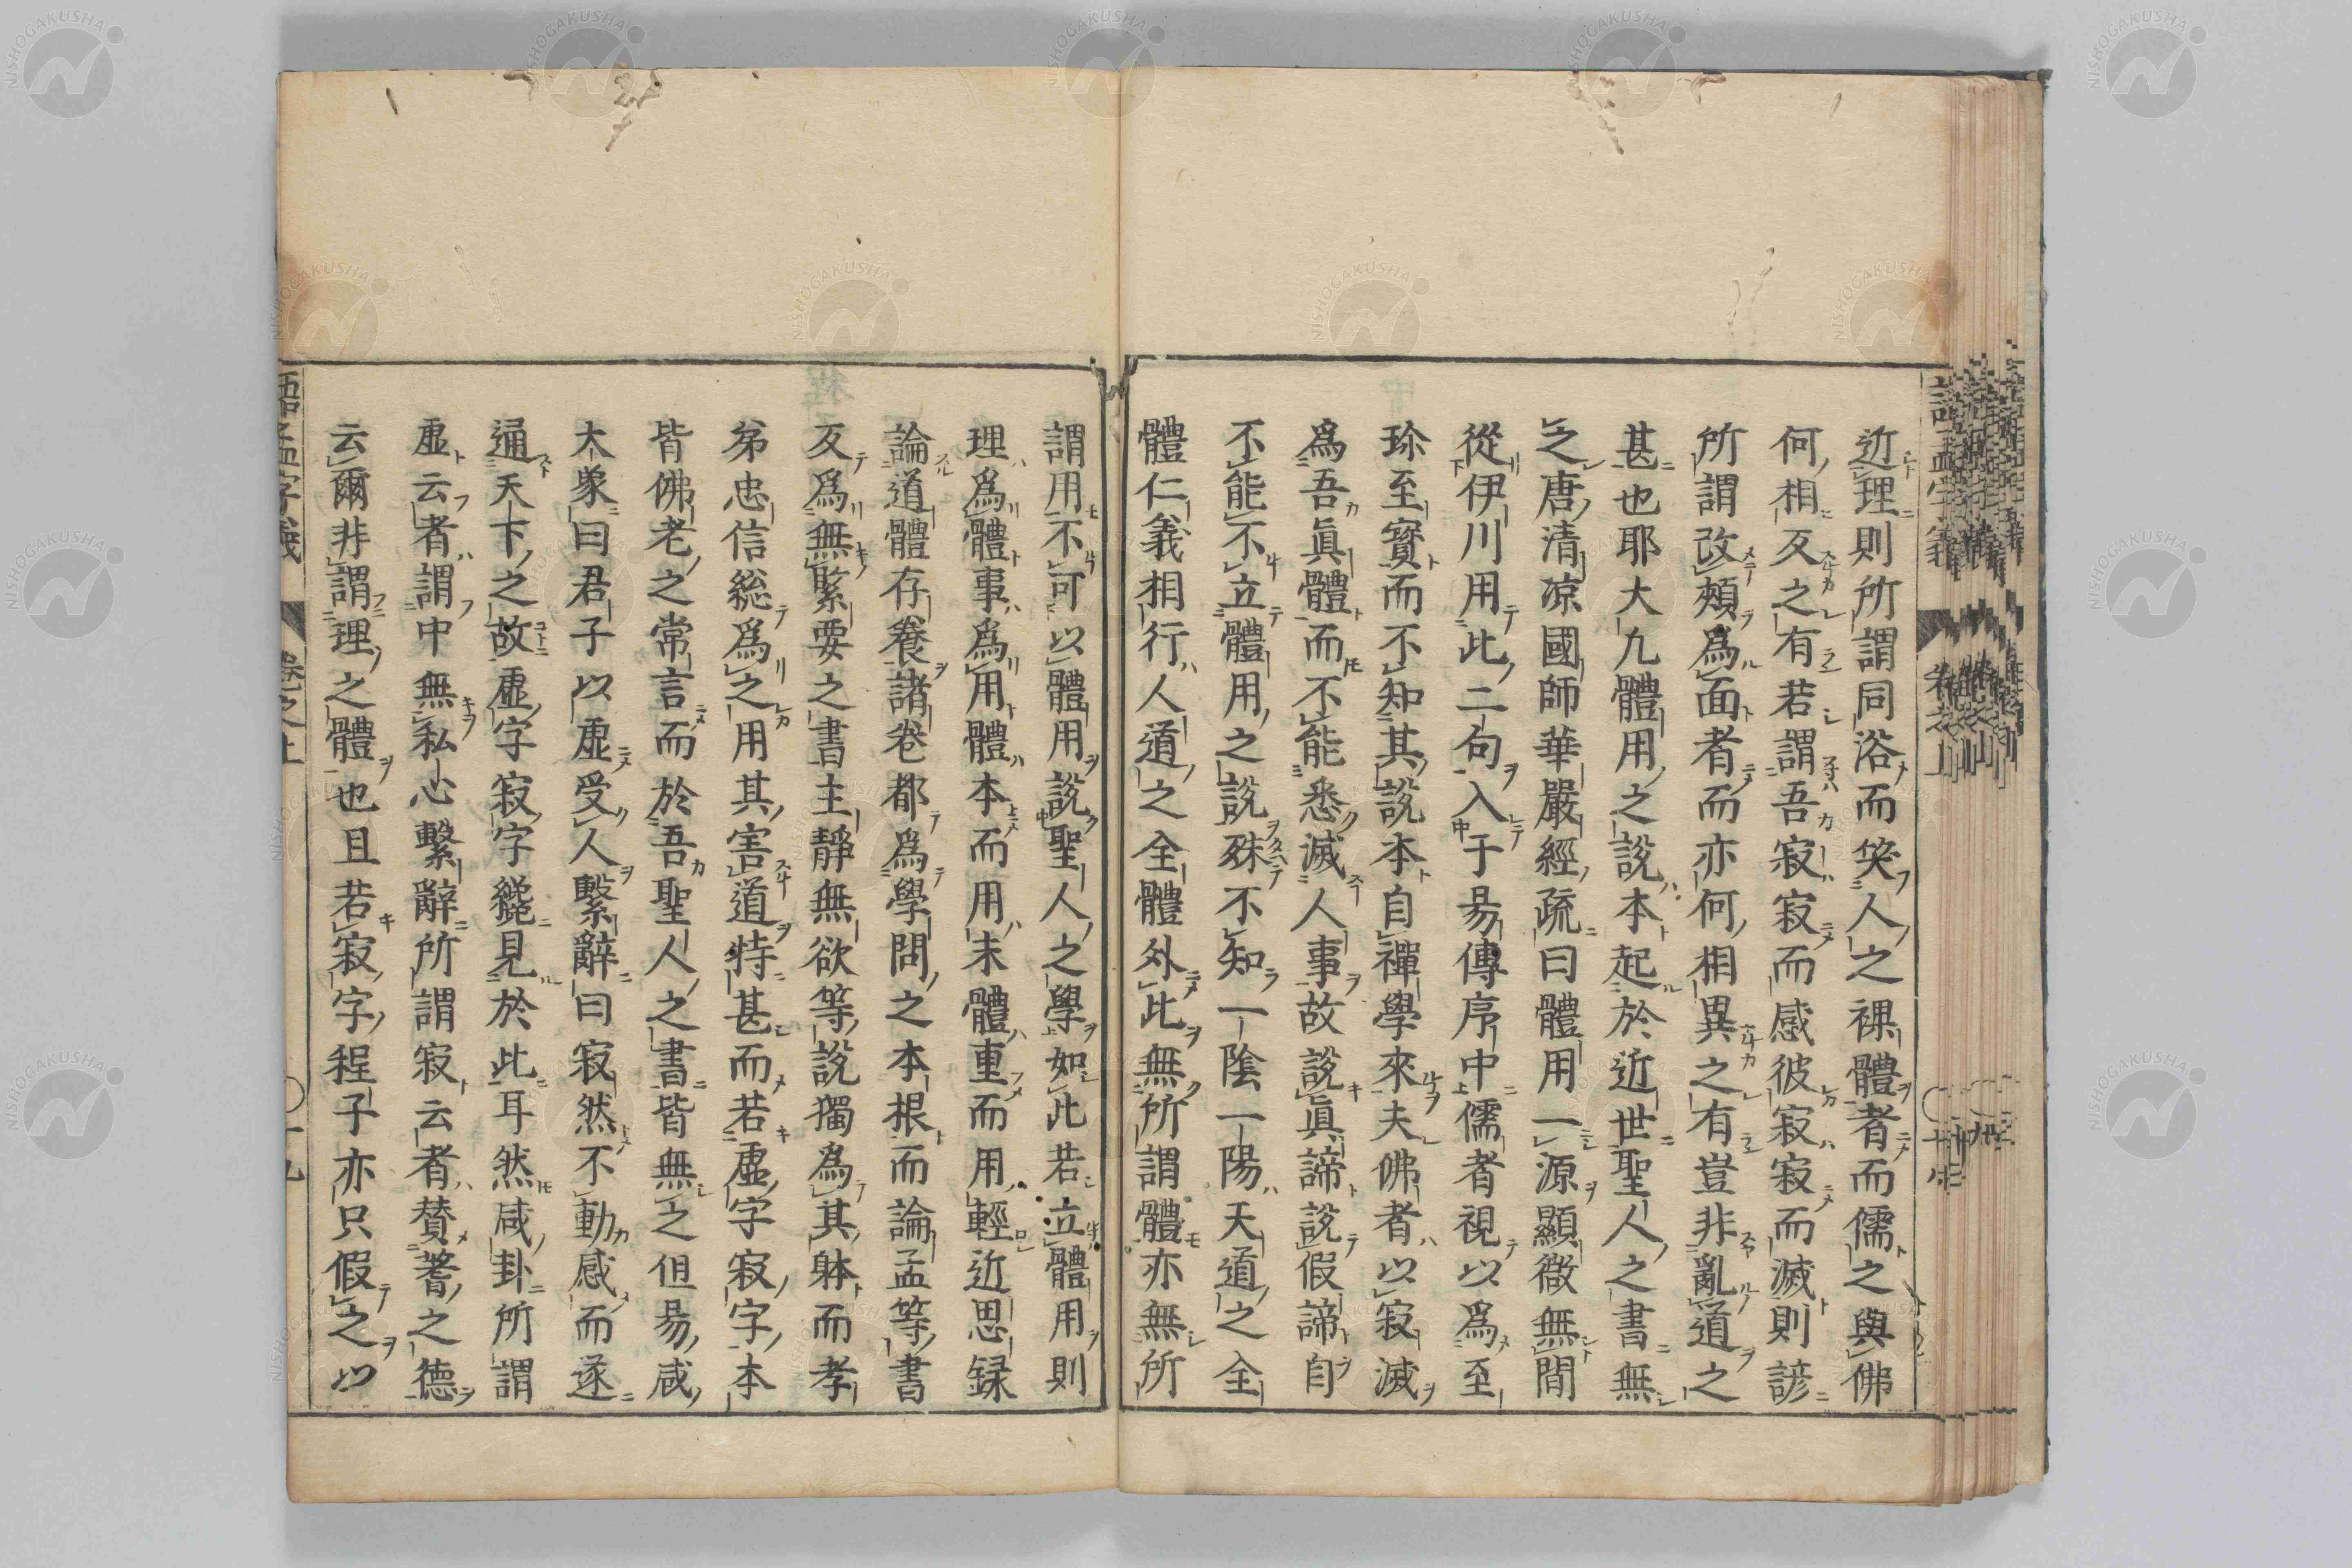 近理則所謂同浴而笑人之裸體者而儒之與佛
何相反之有若謂吾寂寂而感彼寂寂而滅則諺
所謂改頰爲面者而亦何相異之有豈非亂道之
甚也耶大凡體用之說本起於近世聖人之書無
之唐清凉國師華嚴經疏曰體用一源顯微無間
從伊川用此二句入于易傳序中儒者視以爲至
珍至寶而不知其說本自禪學來夫佛者以寂滅
爲吾眞體而不能悉滅人事故說眞諦說假諦自
不能不立體用之說殊不知一陰一陽天道之全
體仁義相行人道之全體外此無所謂體亦無所
謂用不可以體用說聖人之學如此若立體用則
理爲體事爲用體本而用末體重而用輕近思録
論道體存養諸卷都爲學問之本根而論孟等書
反爲無緊要之書主靜無欲等說獨爲其躰而孝
弟忠信総爲之用其害道特甚而若虛字寂字本
皆佛老之常言而於吾聖人之書皆無之但易咸
大象曰君子以虛受人繫辭曰寂然不動感而遂
通天下之故虛字寂字纔見於此耳然咸卦所謂
虛云者謂中無私心繫辭所謂寂云者賛蓍之德
云爾非謂理之體也且若寂字程子亦只假之以
語孟字義 卷之上 十九